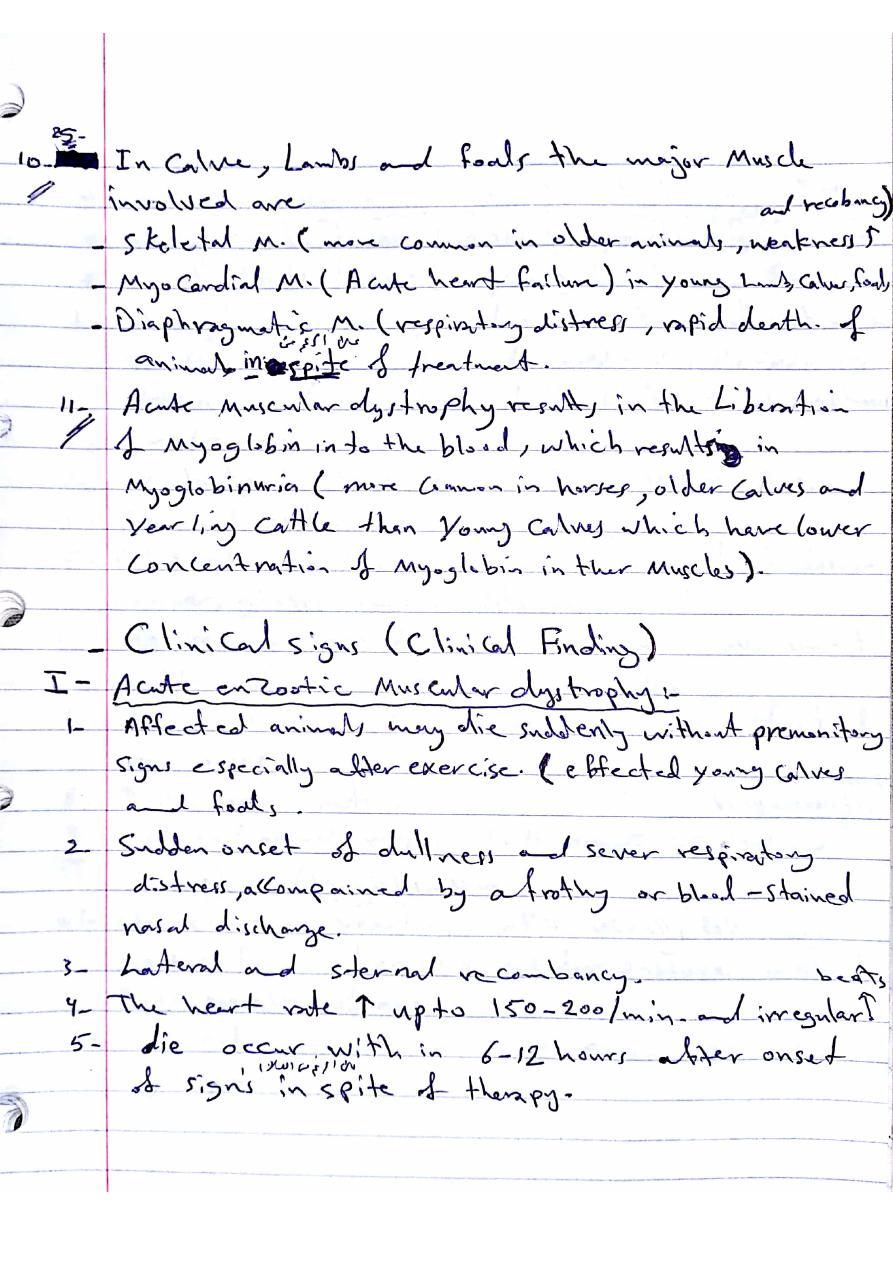 25-
10- In Calve, Lambs and foals the major Muscle
involved are
and recobancy)
- Skeletal M. (more common in older animals, weakness ↑
- MyoCardial M. (Acute heart failure) in young Lamb, Calves, foals
- Diaphragmatic M. (respiratory distress, rapid death. of
animals in spite of treatment.
11- Acute Muscular dystrophy results in the Liberation
of Myoglobin into the blood, which results in
Myoglobinuria (more Common in horses, older Calves and
Yearling Cattle than Young Calves which have lower
Concentration of Myoglobin in ther Muscles).
- Clinical signs (Clinical Finding)
I- Acute enzootic Muscular dystrophy:-
1- Affected animals may die suddenly without premonitory
signs especially after exercise. (effected young calves
and foals.
2- Sudden onset of dullness and sever respiratory
distress, accompained by a frothy or blood-stained
nasal discharge.
3- Lateral and sternal recombancy.
beats
4- The heart rate ↑ up to 150-200/min. and irregular ↑
5- die occur with in 6-12 hours after onset
of signs in spite of therapy.